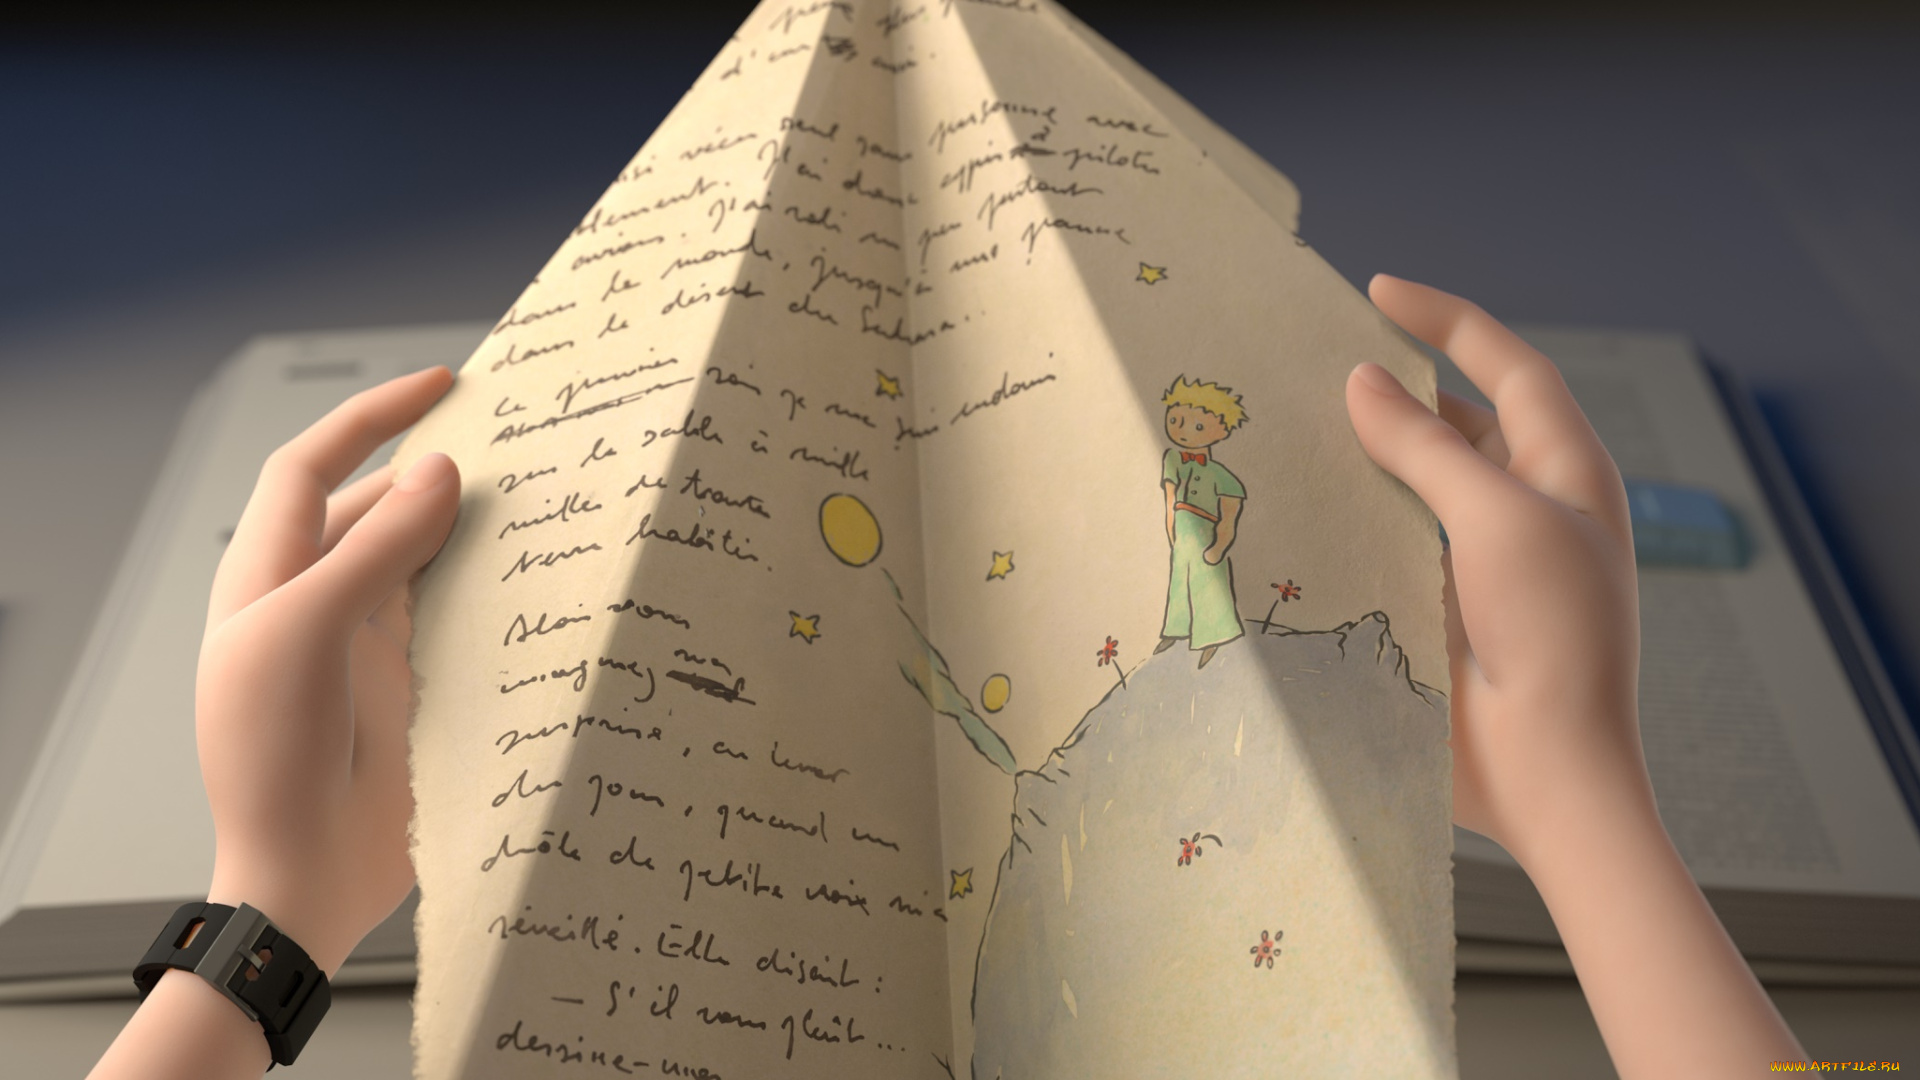 d'eux
ainsi vécu seul sans personne avec
J'ai donc appris à piloter
avions. J'ai volé un peu partout
dans le monde, jusqu'à une panne
dans le désert du Sahara...
Ce premier soir je me suis endormi
sur le sable à mille
milles de toute
terre habitée.
Alors vous
imaginez ma
surprise, au lever
du jour, quand une
drôle de petite voix m'a
réveillé. Elle disait :
— S'il vous plaît...
dessine-
WWW.ARTFILE.RU